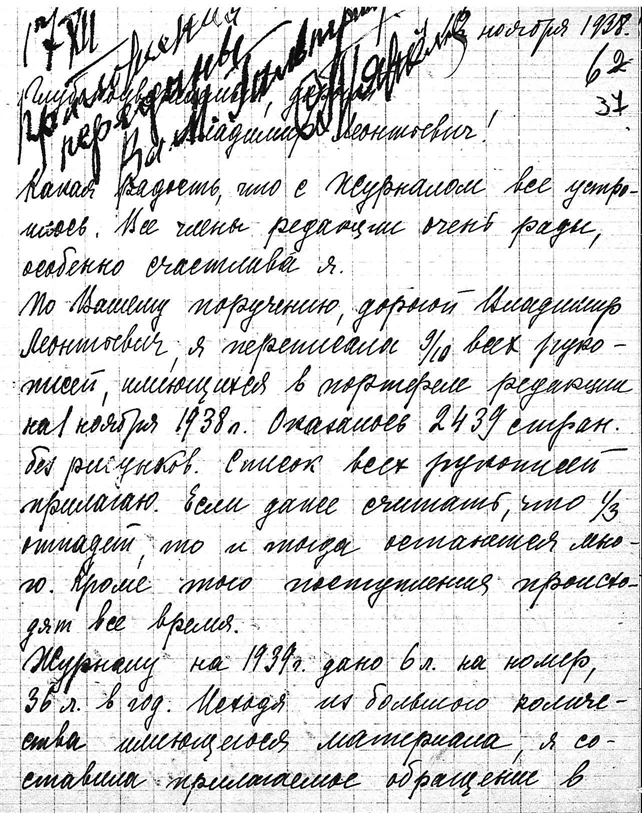 17/XII
приложения
переданы
12 ноября 1938.
62
37
Глубокоуважаемый, дорогой
Владимир Леонтьевич!
Какая радость, что с Журналом все устро-
илось. Все члены редакции очень рады,
особенно счастлива я.
По Вашему поручению, дорогой Владимир
Леонтьевич, я переписала 9/10 всех руко-
писей, имеющихся в портфеле редакции
на 1 ноября 1938 г. Оказалось 2439 стран.
без рисунков. Список всех рукописей
прилагаю. Если даже считать, что 1/3
отпадет, то и тогда останется мно-
го. Кроме того поступления происхо-
дят все время.
Журналу на 1939 г. дано 6 л. на номер,
36 л. в год. Исходя из большого количе-
ства имеющегося материала, я со-
ставила прилагаемое обращение в